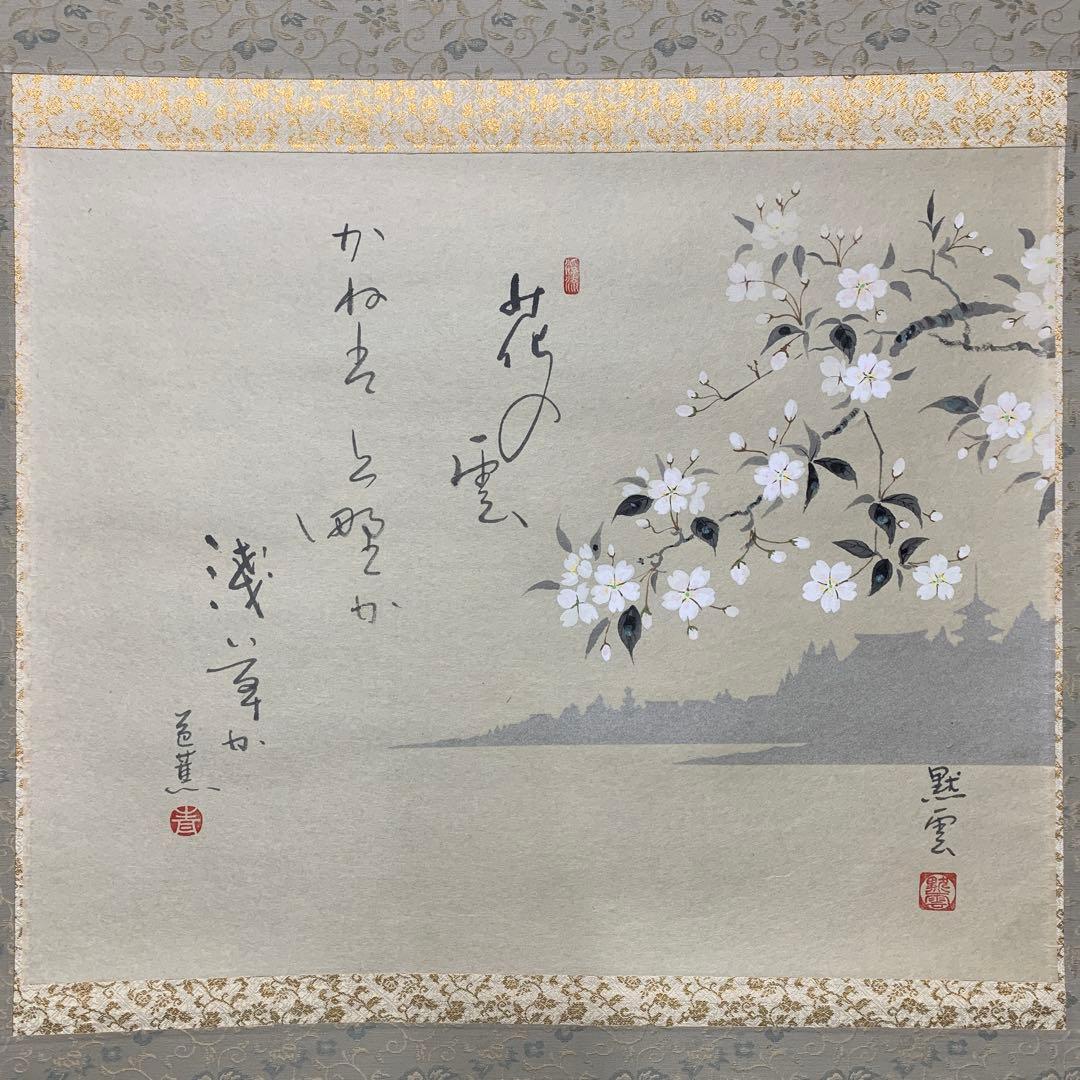 花の
雲
かね者
上野か
浅草か
芭蕉
黙雲